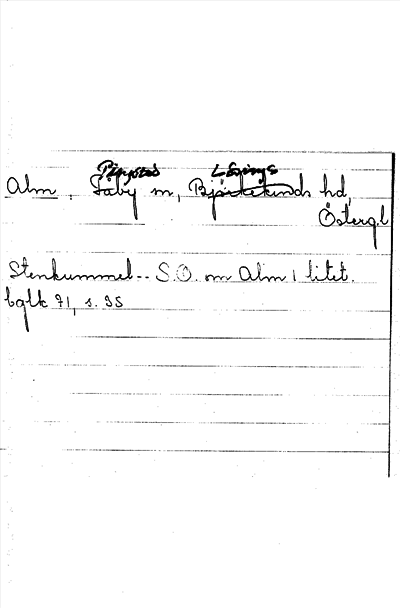 Ringstad Lösings
Alm, Täby sn, Björkekinds hd,
Östergl
Stenkummel -- S.O. om Alm, litet.
bglk 71, s. 35